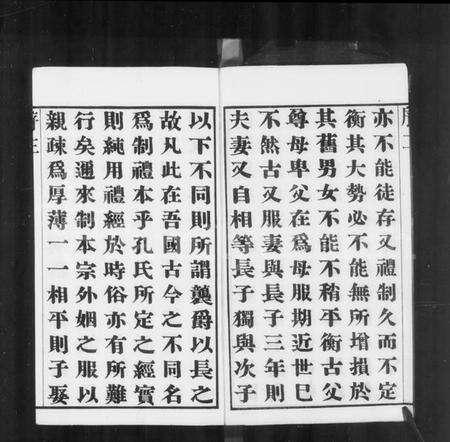 亦不能徒存又禮制久而不定
衡其大勢必不能無所增損於
其舊男女不能不稍平衡古父
尊母卑父在爲母服期近世巳
不然古又服妻與長子三年則
夫妻又自相等長子獨與次子
以下不同則所謂襲爵以長之
故凡此在吾國古今之不同名
爲制禮本乎孔氏所定之經實
則純用禮經於時俗亦有所難
行矣邇來制本宗外姻之服以
親疎爲厚薄一一相平則子娶